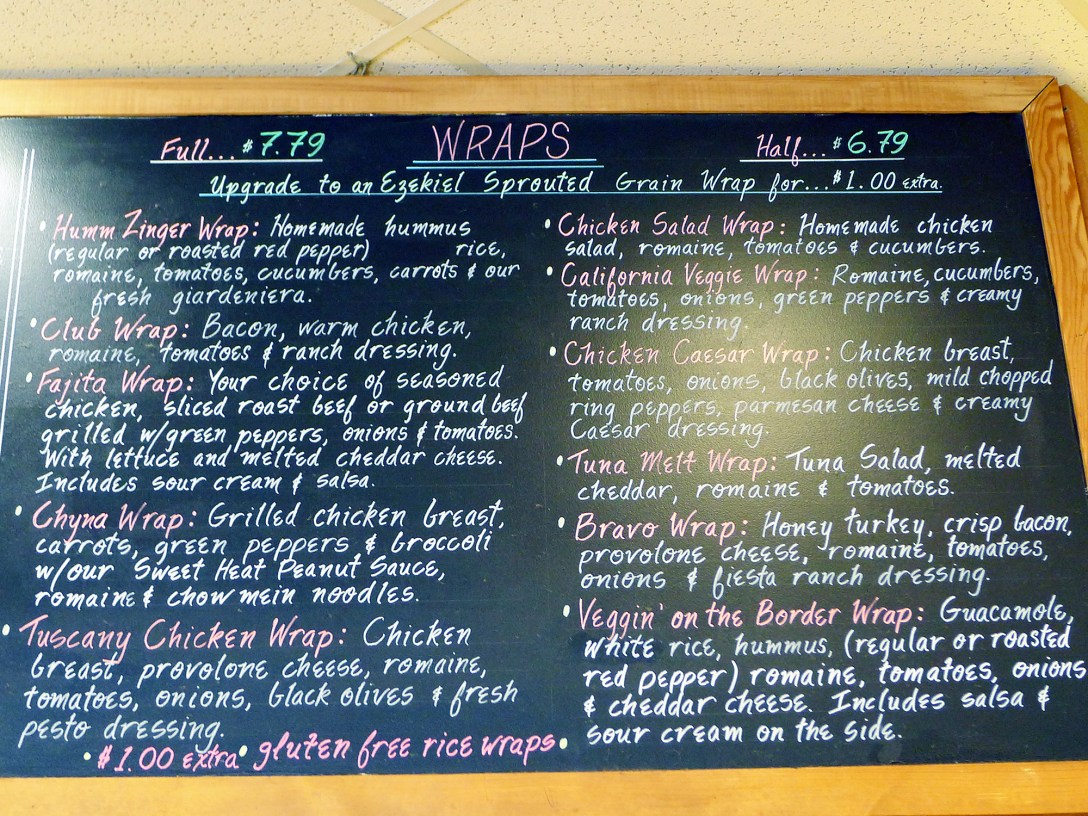 WRAPS
Full... $7.79
Half... $6.79
Upgrade to an Ezekiel Sprouted Grain Wrap for...$1.00 extra.
• Humm Zinger Wrap: Homemade hummus
(regular or roasted red pepper) rice,
romaine, tomatoes, cucumbers, carrots & our
fresh giardeniera.
• Club Wrap: Bacon, warm chicken,
romaine, tomatoes & ranch dressing.
• Fajita Wrap: Your choice of seasoned
chicken, sliced roast beef or ground beef
grilled w/green peppers, onions & tomatoes.
With lettuce and melted cheddar cheese.
Includes sour cream & salsa.
• Chyna Wrap: Grilled chicken breast,
carrots, green peppers & broccoli
w/our Sweet Heat Peanut Sauce,
romaine & chow mein noodles.
• Tuscany Chicken Wrap: Chicken
breast, provolone cheese, romaine,
tomatoes, onions, black olives & fresh
pesto dressing.
• $1.00 extra • gluten free rice wraps •
• Chicken Salad Wrap: Homemade chicken
salad, romaine, tomatoes & cucumbers.
• California Veggie Wrap: Romaine, cucumbers,
tomatoes, onions, green peppers & creamy
ranch dressing.
• Chicken Caesar Wrap: Chicken breast,
tomatoes, onions, black olives, mild chopped
ring peppers, parmesan cheese & creamy
Caesar dressing.
• Tuna Melt Wrap: Tuna Salad, melted
cheddar, romaine & tomatoes.
• Bravo Wrap: Honey turkey, crisp bacon,
provolone cheese, romaine, tomatoes,
onions & fiesta ranch dressing.
• Veggin' on the Border Wrap: Guacamole,
white rice, hummus, (regular or roasted
red pepper) romaine, tomatoes, onions
& cheddar cheese. Includes salsa &
sour cream on the side.